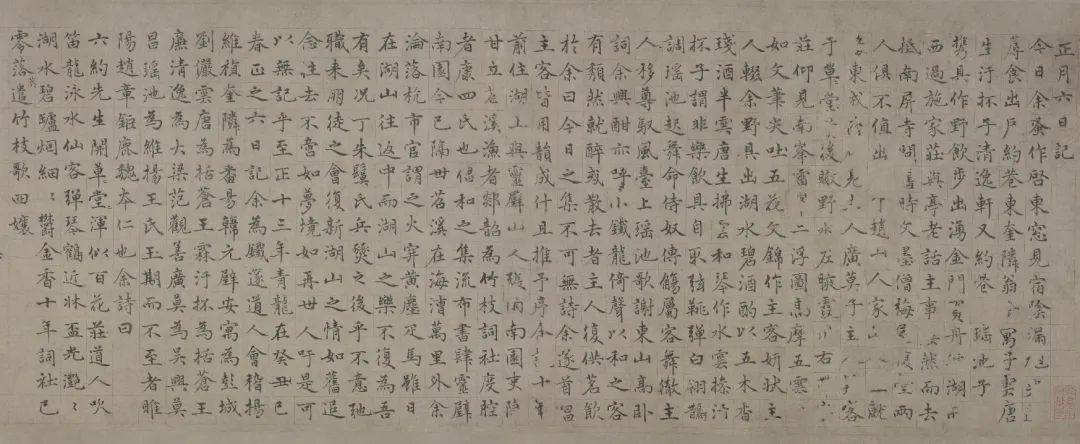 正月六日記
今日余蚤作啓東窓見宿陰漏
蓐食出戶約巷東奎隣翁寓子契唐
生汙抔子清逸軒又約巷瑤池子
携具作野飲步出湧金門買舟湖
西過施家莊與亭老詰主事然而去
抵南屏寺問時文墨僧梅堂兩
人俱不值出趙山人家一觥
東見主人廣莫子主客
于草堂之後瞰野水左睃霞川右
莊仰見南峯雷二浮圖高摩五雲
如文筆尖吐五花文錦作主客妍狀主
人輟余野具出湖水碧酒酌以五木香
琖酒半雲唐生掃雲和琴作水雲操汙
抔子謂非樂飲具自取弦鞉彈白翎鵲
調瑤池起舞命侍奴傳觴屬客舞徹主
人移尊馭風臺上瑤池歌謝東山高卧
詞余興酣亦呼小鐵龍倚聲以和之客
有頽然就醉或散去者主人復供茗飲
於余曰今日之集不可無詩余遂首冒
主客皆用韻成什且推予序余十年
前住湖上與靈壁山人南園東
甘立苕溪漁者郯韶為竹枝詞社廣腔
者康四氏也倡和之集流布書肆靈壁
南園今已隔世苕溪在海漕萬里外余
淪落杭市官謂之火穽黃塵疋馬雖日
在湖山往返中而湖山之樂不復為吾
有矣况丁朱鬕氏兵燹之後乎不意弛
職来朋徒之會復新湖山之情如舊追
念往去不啻如夢境如再世人吁是可
以無記乎至正十三年青龍在癸丑巳
春正之六日記余為鐵邃道人會稽楊
維楨奎隣為番昜韓元璧安寓為彭城
劉儼雲唐為括蒼王霖汙抔為括蒼王
廉清逸為大梁范觀善廣莫為吳興莫
昌瑤池為維揚王氏玉期而不至者睢
陽趙章鉅鹿魏本仁也余詩曰
六約先生開草堂渾似百花莊道人吹
笛龍泳水仙客彈琴鶴近牀盃光灔々
湖水碧驢炯細々欝金香十年詞社已
零落英遣竹枝歌四孃